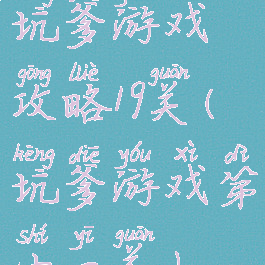 坑爹游戏
gōng lüè guān
攻略19关(
kēng diē yóu xì dì
坑爹游戏第
shí yī guān
十一关)